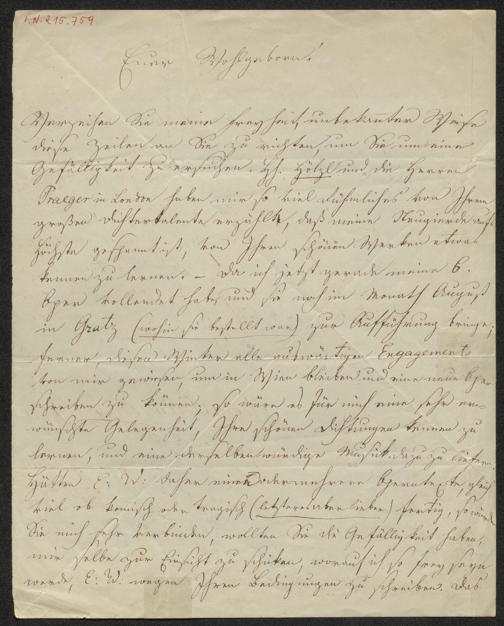 I.N. 215.759
Euer Wohlgeborn!
Verzeihen Sie meine Freyheit, unbekannter Weise
diese Zeilen an Sie zu richten, um Sie um eine
Gefälligkeit zu ersuchen. H. Hölzl und die Herren
Praeger in London haben mir so viel Rühmliches von Ihrem
großen Dichtertalente erzählt, daß meine Neugierde aufs
höchste gespannt ist, von Ihren schönen Werken etwas
kennen zu lernen. – Da ich jetzt gerade meine 6.
Oper vollendet habe, und sie noch im Monath August
in Gratz (wohin sie bestellt war) zur Aufführung bringe;
ferner diesen Winter alle auswärtigen Engagements
von mir gewiesen, um in Wien bleiben und eine neue Oper
schreiben zu können; so wäre es für mich eine sehr er-
wünschte Gelegenheit, Ihre schönen Dichtungen kennen zu
lernen, und eine derselben würdige Musik dazu zu liefern.
Hätten E: W: daher einen oder mehrere Operntexte, gleich
viel ob komisch oder tragisch (letzteres aber lieber) fertig, so würden
Sie mich sehr verbinden, wollten Sie die Gefälligkeit haben,
mir selbe zur Einsicht zu schicken, worauf ich so frey seyn
werde, E: W: wegen Ihren Bedingungen zu schreiben. Das